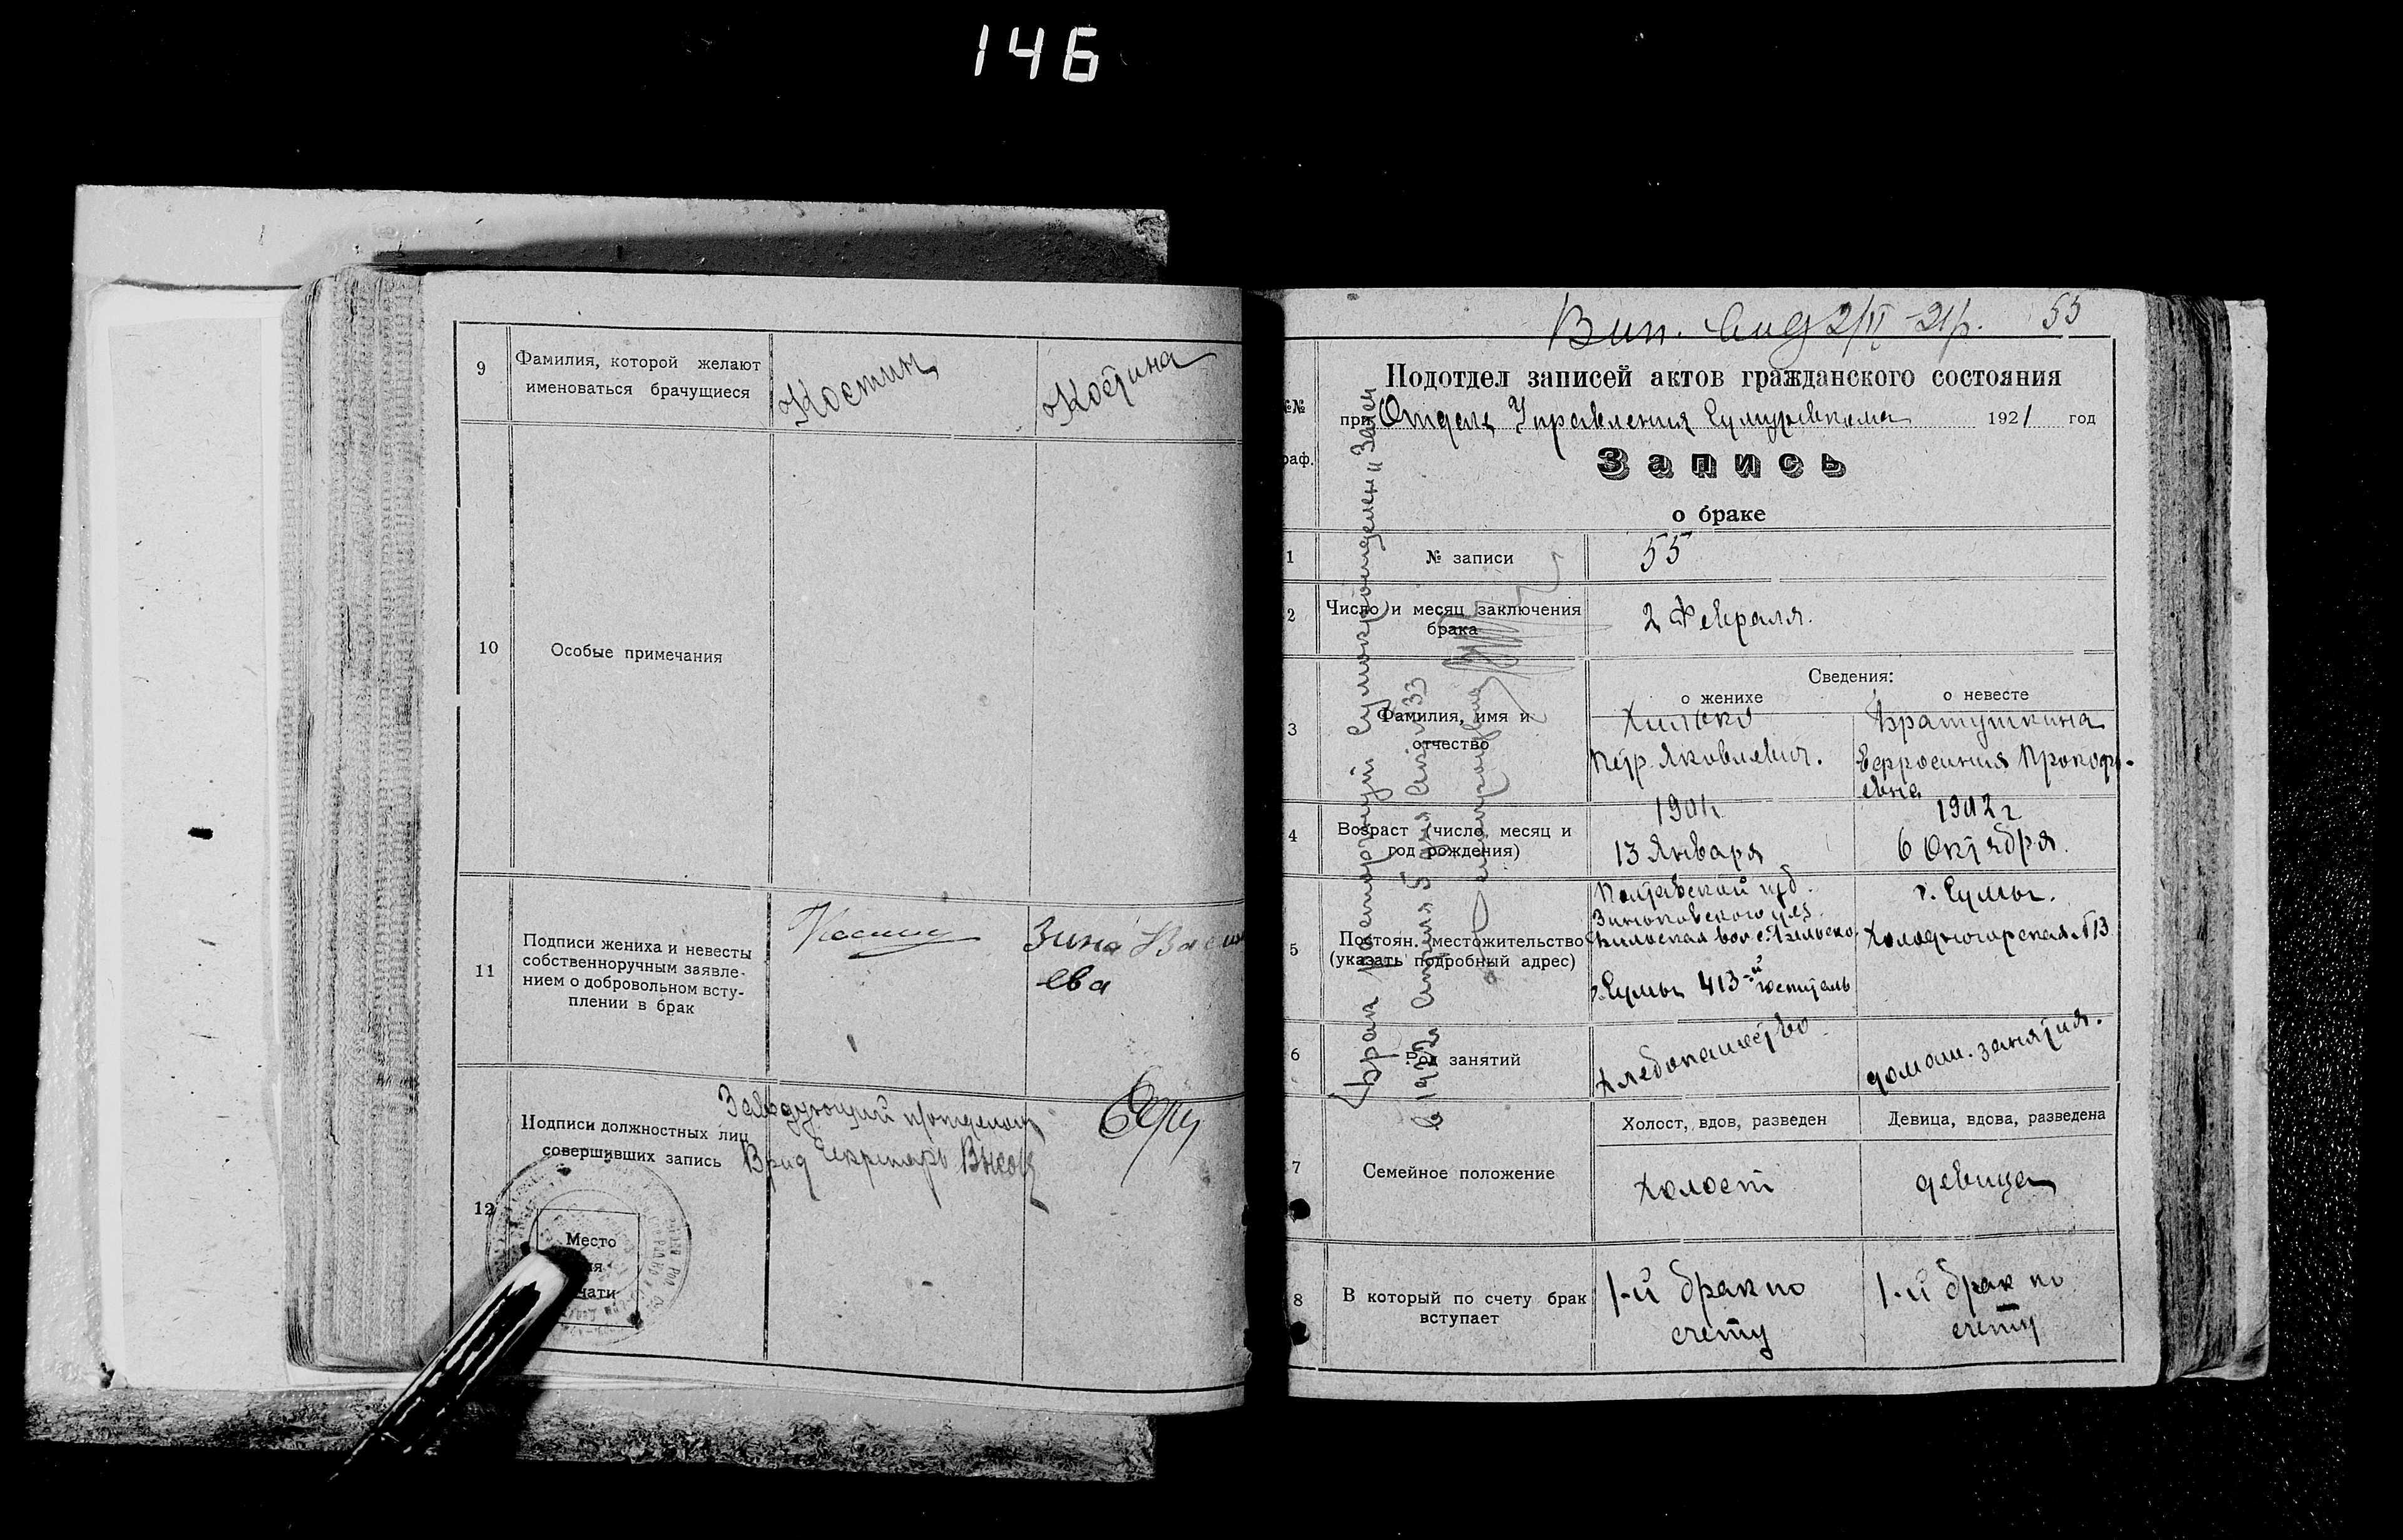 146
9
Фамилия, которой желают
именоваться брачущиеся
Костин
Костина
10
Особые примечания
11
Подписи жениха и невесты
собственноручным заявле-
нием о добровольном всту-
плении в брак
Зина Васил
ева
12
Подписи должностных лиц
совершивших запись
Заведующий п/отделом
Врид Секретарь
Место
чати
Вип. 2/II -21р. 55
№№
раф.
Подотдел записей актов гражданского состояния
при Отделе Управления Сумуревкома 1921 год
Запись
о браке
1
№ записи
55
2
Число и месяц заключения
брака
2 Февраля.
Сведения:
о женихе
о невесте
3
Фамилия, имя и
отчество
Хилько
Петр. Яковлевич.
Братушкина
Евросиния Прокофь-
евна
4
Возраст (число, месяц и
год рождения)
13 Января
1902 г
6 Октября.
5
Постоян. местожительство
(указать подробный адрес)
Полтавской губ.
Зиньковского уез.
г. Сумы 413-й госпиталь
г. Сумы.
Холодногорская №13
6
Род занятий
Хлебопашество
домаш. занятия.
7
Семейное положение
Холост, вдов, разведен
Девица, вдова, разведена
Холост
девица
8
В который по счету брак
вступает
1-й брак по
счету
1-й брак по
счету
Брак расторгнут
в 1922 Апреля 5 дня Акт №33